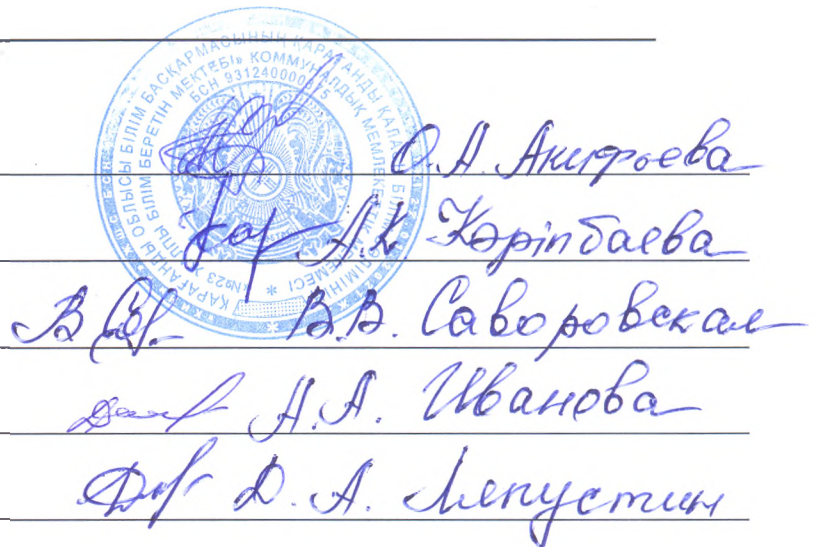 ҚАРАҒАНДЫ ОБЛЫСЫ БІЛІМ БАСҚАРМАСЫНЫҢ ҚАРАҒАНДЫ ҚАЛАСЫ БІЛІМ БӨЛІМІНІҢ
«№23 ЖАЛПЫ БІЛІМ БЕРЕТІН МЕКТЕБІ» КОММУНАЛДЫҚ МЕМЛЕКЕТТІК МЕКЕМЕСІ
БСН
О.А. Анифоева
А.К Кәріпбаева
В.В. Саворовская
А.А. Иванова
Д.А. Ляпустин